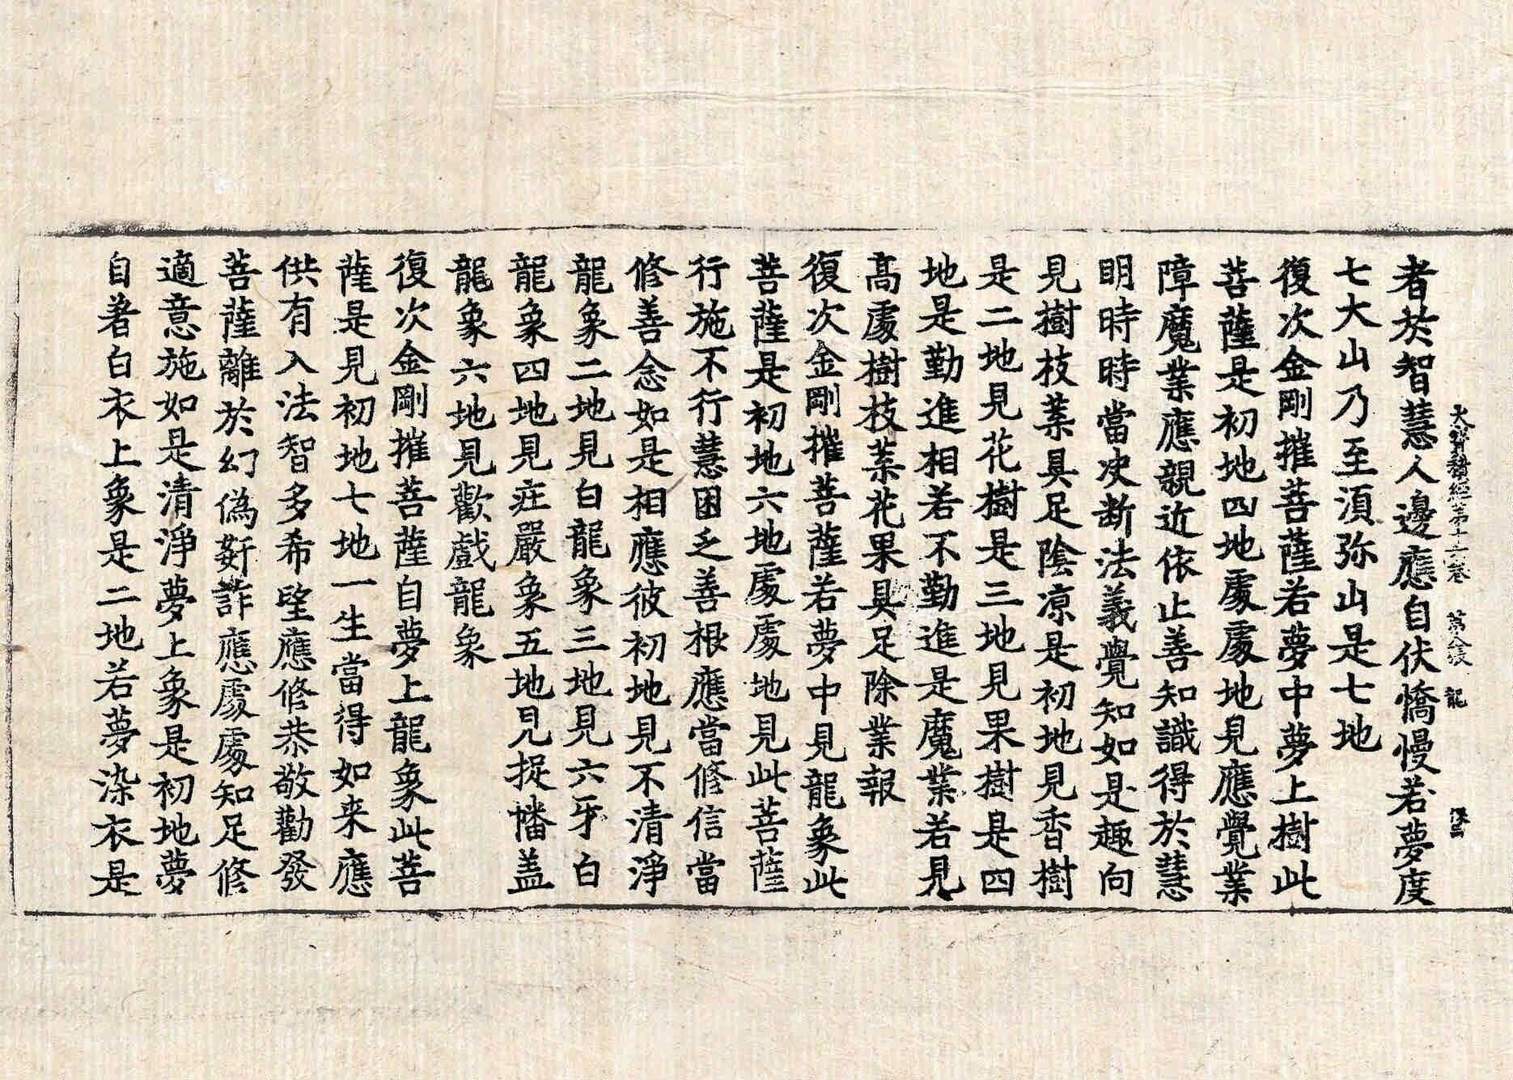 大寶積經第十六卷 第八張 龍
者於智慧人邊應自伏憍慢若夢度
七大山乃至須弥山是七地
復次金剛摧菩薩若夢中夢上樹此
菩薩是初地四地處處地見應覺業
障魔業應親近依止善知識得於慧
明時時當決断法義覺知如是趣向
見樹枝葉具足陰凉是初地見香樹
是二地見花樹是三地見果樹是四
地是勤進相若不勤進是魔業若見
高處樹枝葉花果具足除業報
復次金剛摧菩薩若夢中見龍象此
菩薩是初地六地處處地見此菩薩
行施不行慧困乏善根應當修信當
修善念如是相應彼初地見不清淨
龍象二地見白龍象三地見六牙白
龍象四地見庄嚴象五地見捉幡盖
龍象六地見歡戲龍象
復次金剛摧菩薩自夢上龍象此菩
薩是見初地七地一生當得如来應
供有入法智多希望應修恭敬勸發
菩薩離於幻偽姧詐應處處知足修
適意施如是清淨夢上象是初地夢
自著白衣上象是二地若夢染衣是